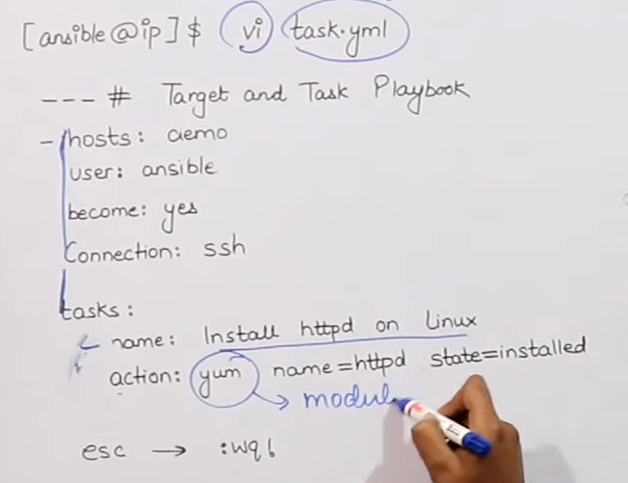 [ansible@ip]$ vi task.yml
--- # Target and Task Playbook
- hosts: demo
user: ansible
become: yes
Connection: ssh
tasks:
- name: Install httpd on Linux
action: yum name=httpd state=installed
modul
esc → :wq!